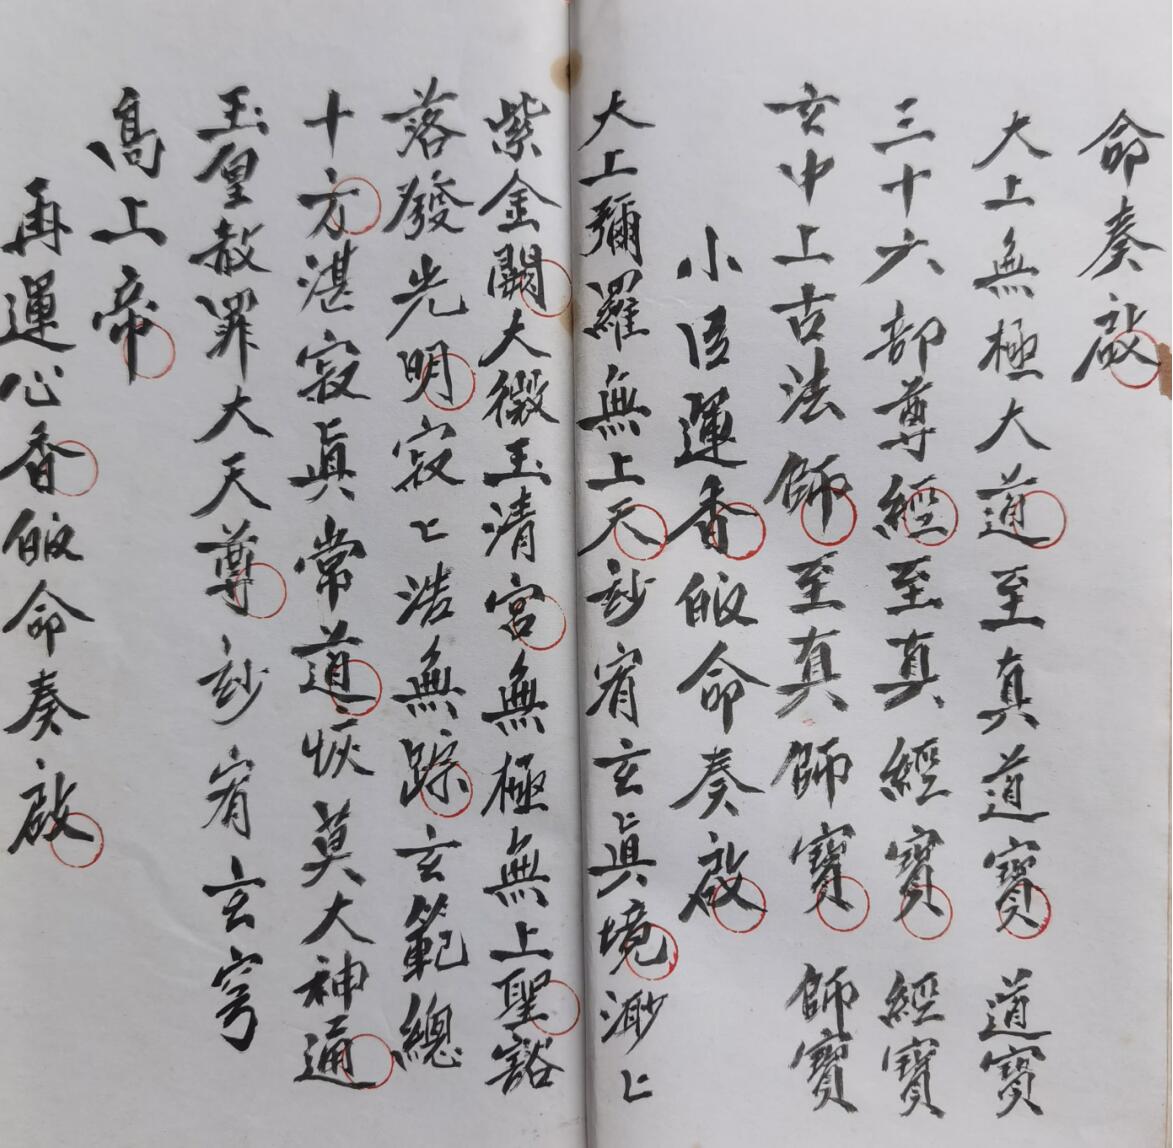 命奏啟
大上無極大道至真道寶道寶
三十六部尊經至真經寶經寶
玄中上古法師至真師寶師寶
小臣運香皈命奏啟
大上彌羅無上天玅有玄眞境渺〻
紫金闕大微玉清宮無極無上聖豁
落發光明寂〻浩無踪玄範總
十方湛寂眞常道恢莫大神通
玉皇赦罪大天尊玅有玄穹
高上帝
再運心香皈命奏啟